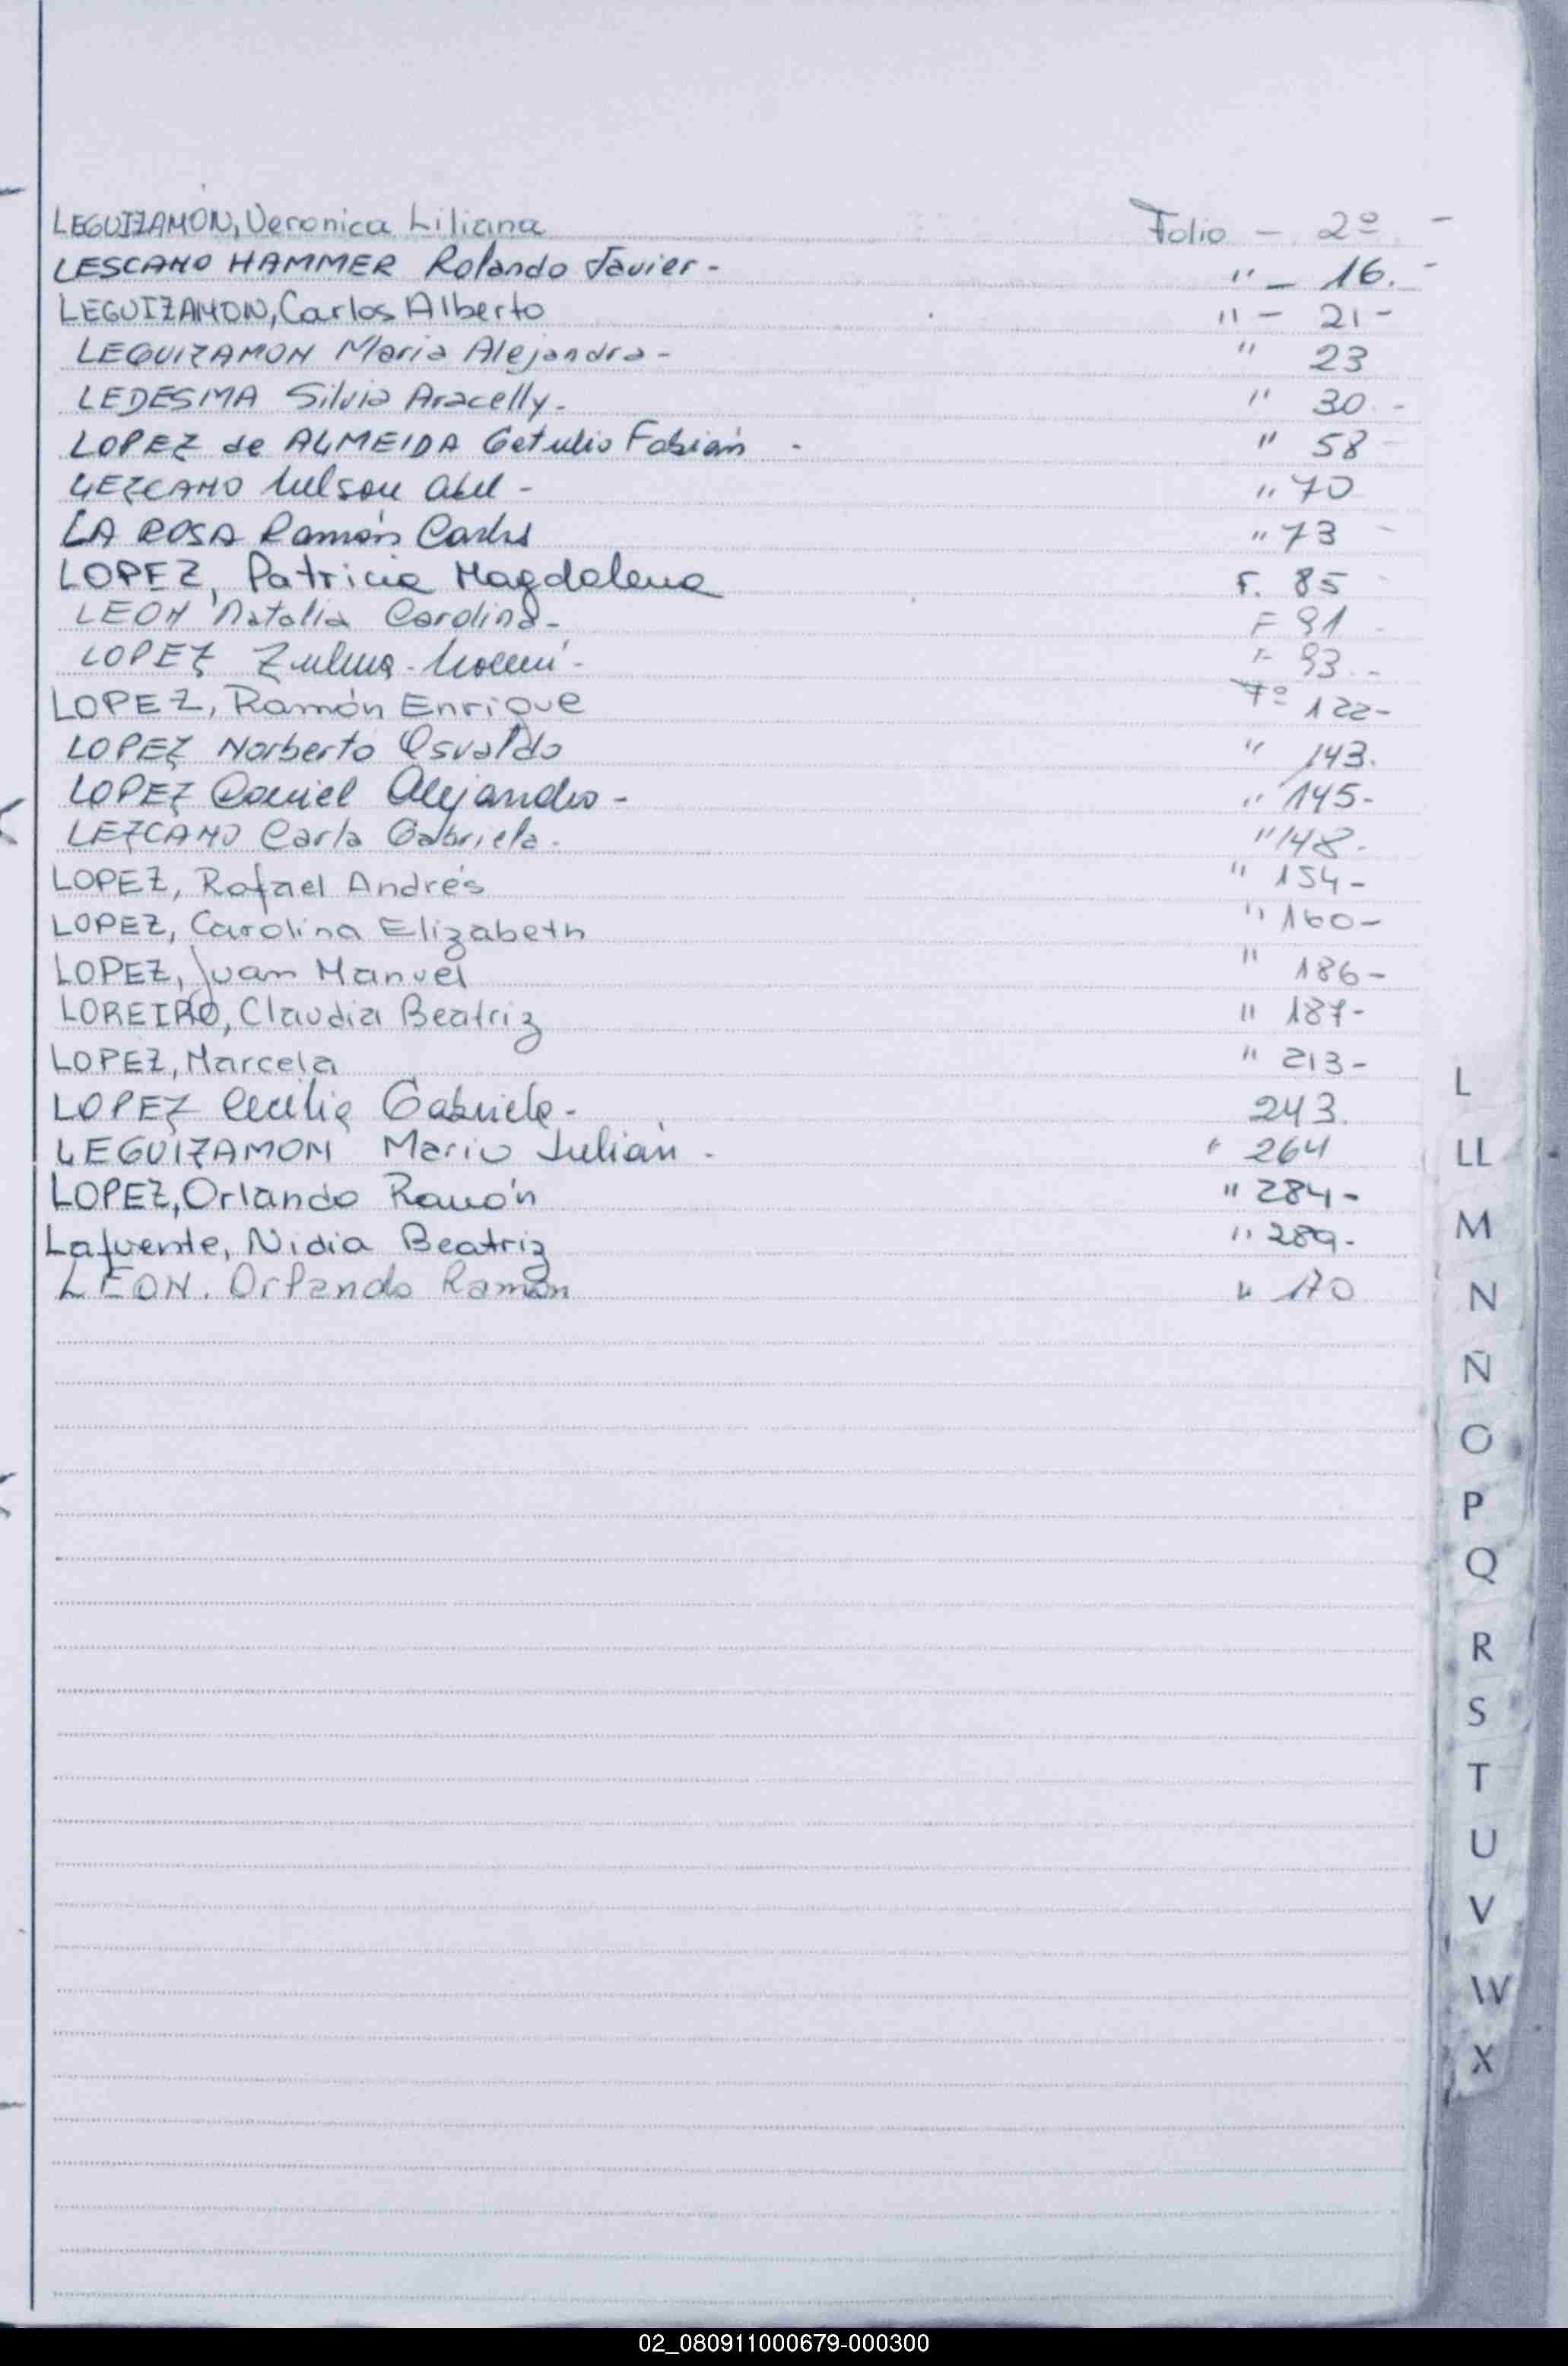 LEGUIZAMON, Veronica Liliana Folio - 2º -
LESCANO HAMMER Rolando Javier - " - 16. -
LEGUIZAMON, Carlos Alberto " - 21 -
LEGUIZAMON Maria Alejandra - " 23
LEDESMA Silvia Aracelly - " 30 -
LOPEZ de ALMEIDA Getulio Fabián - " 58
LEZCANO Nelson Abel - " 70
LA ROSA Ramón Carlos " 73
LOPEZ, Patricia Magdalena F. 85
LEON Natalia Carolina - F 91
LOPEZ Zulma Noemí - F 93 -
LOPEZ, Ramón Enrique Fº 122 -
LOPEZ Norberto Osvaldo " 143.
LOPEZ Daniel Alejandro - " 145 -
LEZCANO Carla Gabriela - " 148 -
LOPEZ, Rafael Andrés " 154 -
LOPEZ, Carolina Elizabeth " 160 -
LOPEZ, Juan Manuel " 186 -
LOREIRO, Claudia Beatriz " 187 -
LOPEZ, Marcela " 213 -
LOPEZ Cecilia Gabriela - 243.
LEGUIZAMON Mario Julián - " 264
LOPEZ, Orlando Ramón " 284 -
Lafuente, Nidia Beatriz " 289 -
LEON. Orlando Ramón " 170
L
LL
M
N
Ñ
O
P
Q
R
S
T
U
V
W
X
02_080911000679-000300